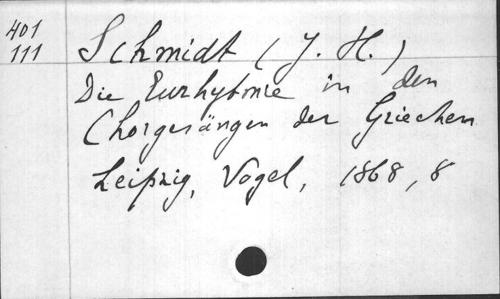 401
111
Schmidt (J. H.)
Die Eurhythmie in den
Chorgesängen der Griechen
Leipzig, Vogel, 1868, 8